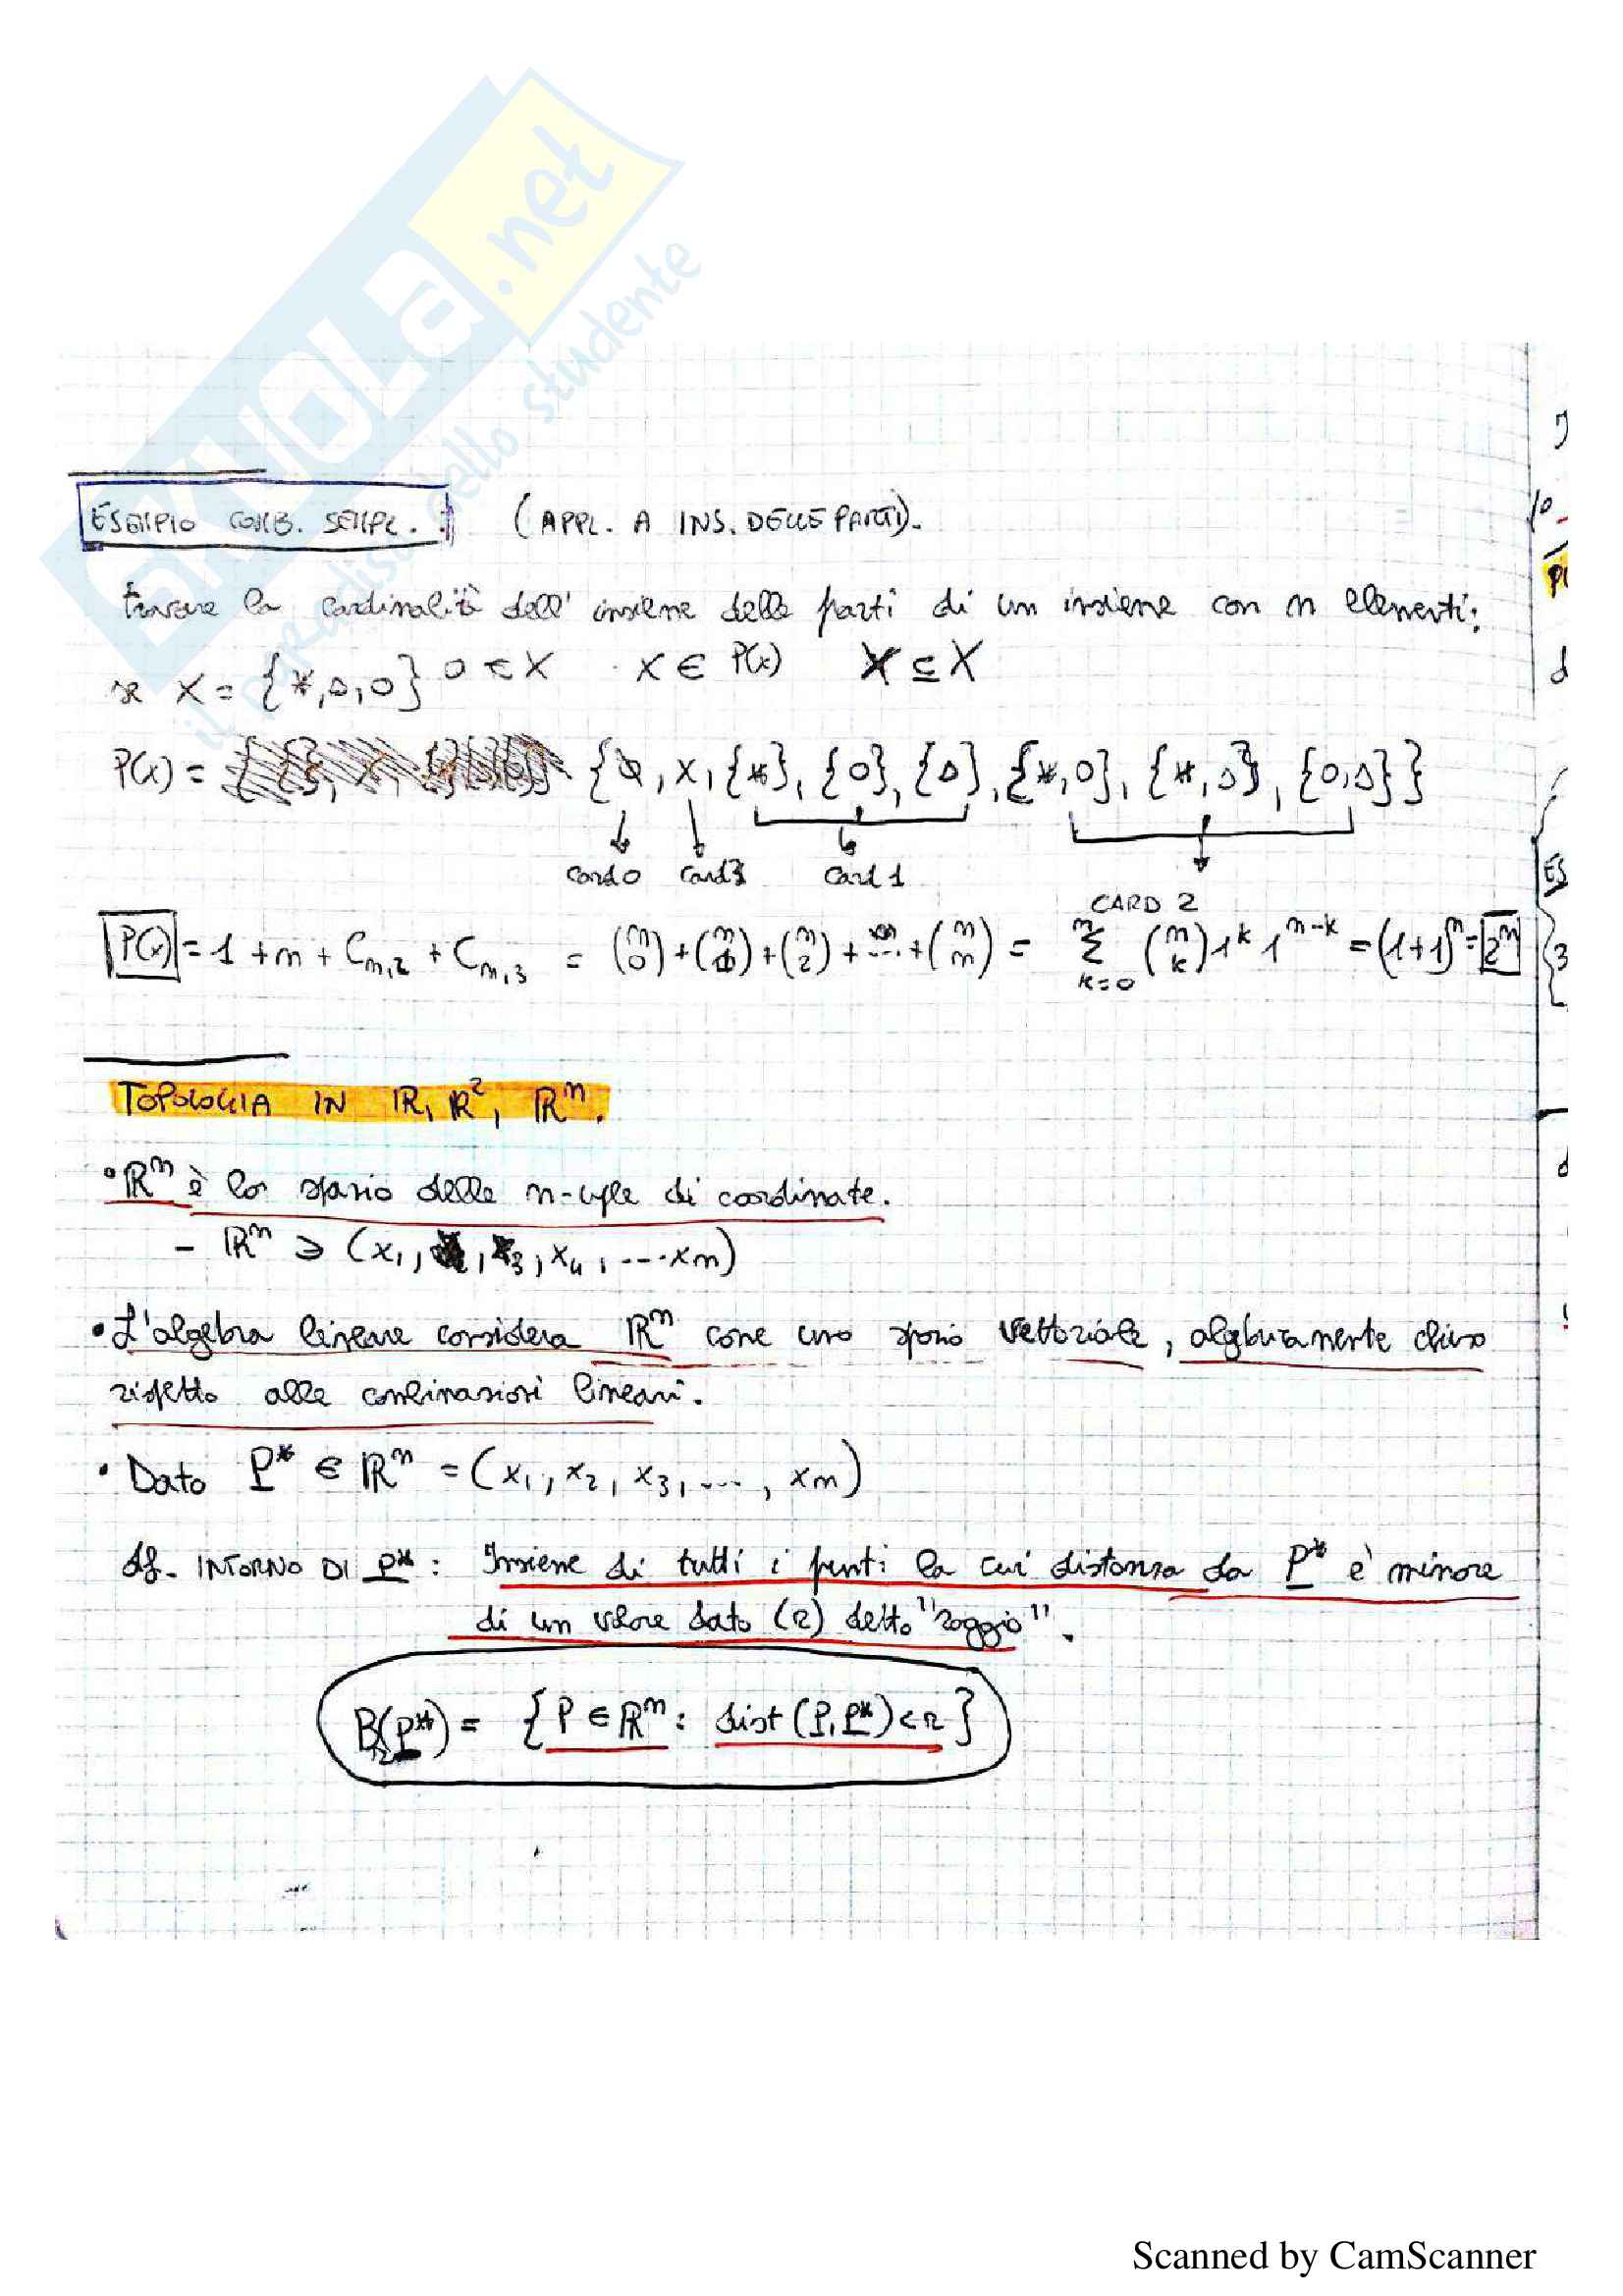 SKUOLA.net
il paradiso dello studente
ESEMPIO COMB. SEMPL. : (APPL. A INS. DELLE PARTI).
trovare la cardinalità dell' insieme delle parti di un insieme con n elementi:
se X = {*, Δ, O} O ∈ X X ∈ P(x) X ⊆ X
P(x) = {∅, X, {*}, {O}, {Δ}, {*, O}, {*, Δ}, {O, Δ}}
card 0 card 3 card 1
CARD 2
P(x) = 1 + n + C_{n,2} + C_{n,3} = (n 0) + (n 1) + (n 2) + ... + (n n) = Σ_{k=0}^{n} (n k) 1^k 1^{n-k} = (1+1)^n = 2^n
TOPOLOGIA IN ℝ, ℝ², ℝⁿ.
• ℝⁿ è lo spazio delle n-uple di coordinate.
- ℝⁿ ∋ (x₁, x₂, x₃, x₄, ... xₙ)
• L'algebra lineare considera ℝⁿ come uno spazio vettoriale, algebricamente chiuso
rispetto alle combinazioni lineari.
• Dato P* ∈ ℝⁿ = (x₁, x₂, x₃, ..., xₙ)
df. INTORNO DI P* : Insieme di tutti i punti la cui distanza da P* è minore
di un valore dato (r) detto "raggio".
B_r(P*) = {P ∈ ℝⁿ : dist(P, P*) < r}
Scanned by CamScanner